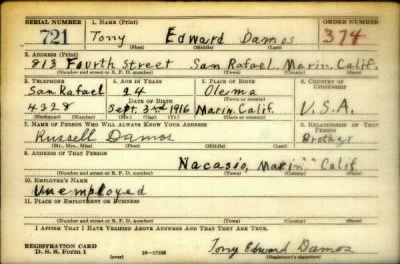 SERIAL NUMBER 1. NAME (Print) ORDER NUMBER
721 Tony Edward Damos 374
(First) (Middle) (Last)
2. ADDRESS (Print)
813 Fourth Street San Rafael Marin, Calif.
(Number and street or R. F. D. number) (Town) (County) (State)
3. TELEPHONE 4. AGE IN YEARS 5. PLACE OF BIRTH 6. COUNTRY OF CITIZENSHIP
San Rafael 24 Olema
DATE OF BIRTH (Town or county)
4328 Sept. 3rd 1916 Marin, Calif. U.S.A.
(Exchange) (Number) (Mo.) (Day) (Yr.) (State or country)
7. NAME OF PERSON WHO WILL ALWAYS KNOW YOUR ADDRESS 8. RELATIONSHIP OF THAT PERSON
Russell Damos Brother
(Mr., Mrs., Miss) (First) (Middle) (Last)
9. ADDRESS OF THAT PERSON
Nacasio, Marin Calif
(Number and street or R. F. D. number) (Town) (County) (State)
10. EMPLOYER'S NAME
Unemployed
11. PLACE OF EMPLOYMENT OR BUSINESS
(Number and street or R. F. D. number) (Town) (County) (State)
I AFFIRM THAT I HAVE VERIFIED ABOVE ANSWERS AND THAT THEY ARE TRUE.
REGISTRATION CARD
D. S. S. Form 1 (over) Tony Edward Damos
(Registrant's signature)